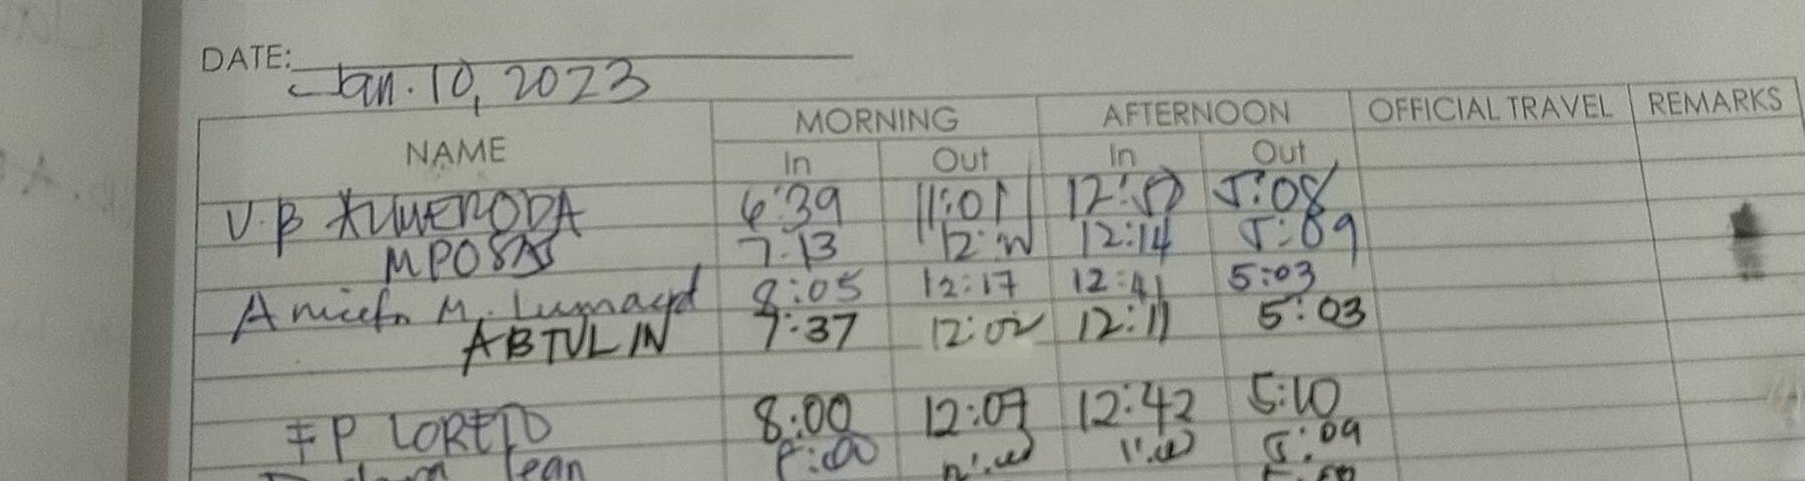 DATE: Jan. 10, 2023
NAME MORNING AFTERNOON OFFICIAL TRAVEL REMARKS
In Out In Out
V.B 6:39 11:01 5:08
MPOSAS 7:13 12:14 5:09
M. 8:05 12:17 12:41 5:03
ABTULIN 7:37 12:02 12:11 5:03
FP LORETO 8:00 12:07 12:42 5:10
Jean 8:00 5:09